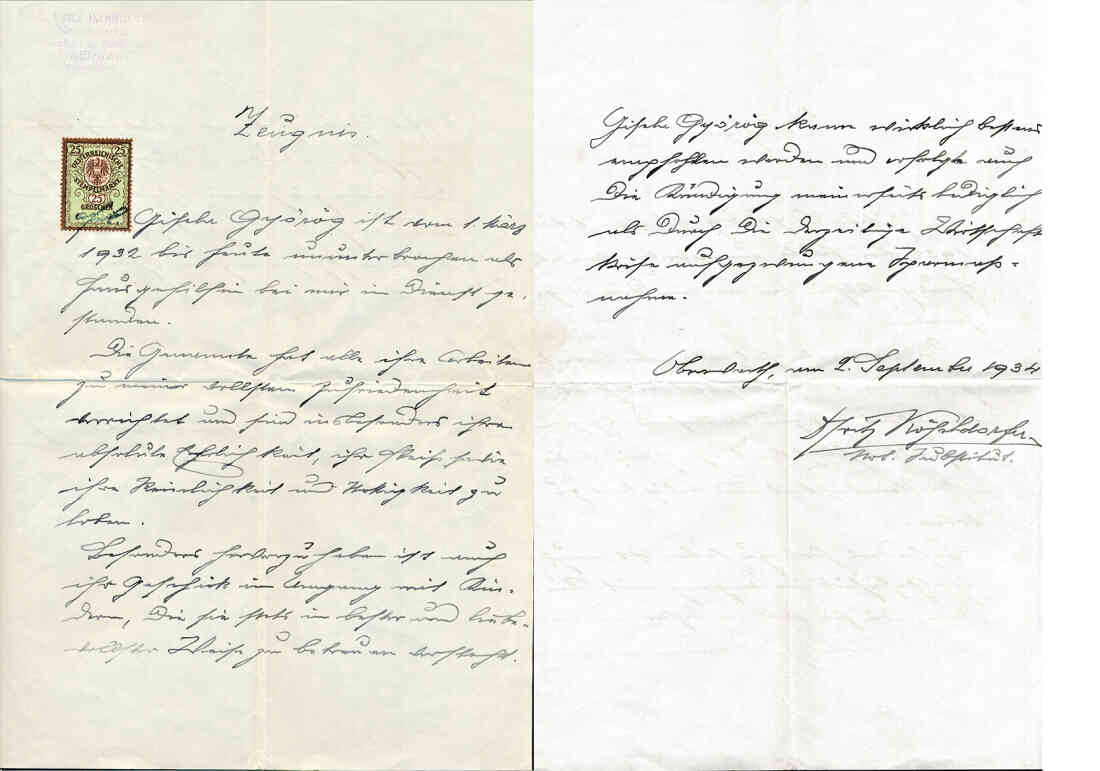 Zeugnis.
25 25
ÖSTERREICHISCHE
STEMPELMARKE
25
GROSCHEN
Gisela Györög ist vom 1. März
1932 bis heute ununterbrochen als
Hausgehilfin bei mir in Dienst ge-
standen.
Die Genannte hat alle ihre Arbeiten
zu meiner vollsten Zufriedenheit
verrichtet und sind insbesonders ihre
absolute Ehrlichkeit, ihr Fleiß sowie
ihre Reinlichkeit und Nettigkeit zu
loben.
Besonders hervorzuheben ist auch
ihr Geschick im Umgang mit Kin-
dern, die sie stets in bester und liebe-
vollster Weise zu betreuen versteht.
Gisela Györög kann wirklich bestens
empfohlen werden und erfolgte auch
die Kündigung meinerseits lediglich
als durch die derzeitige Wirtschafts
krise aufgezwungene Sparmaß-
nahme.
Oberwarth, am 2. September 1934
Fritz
Not. Substitut.